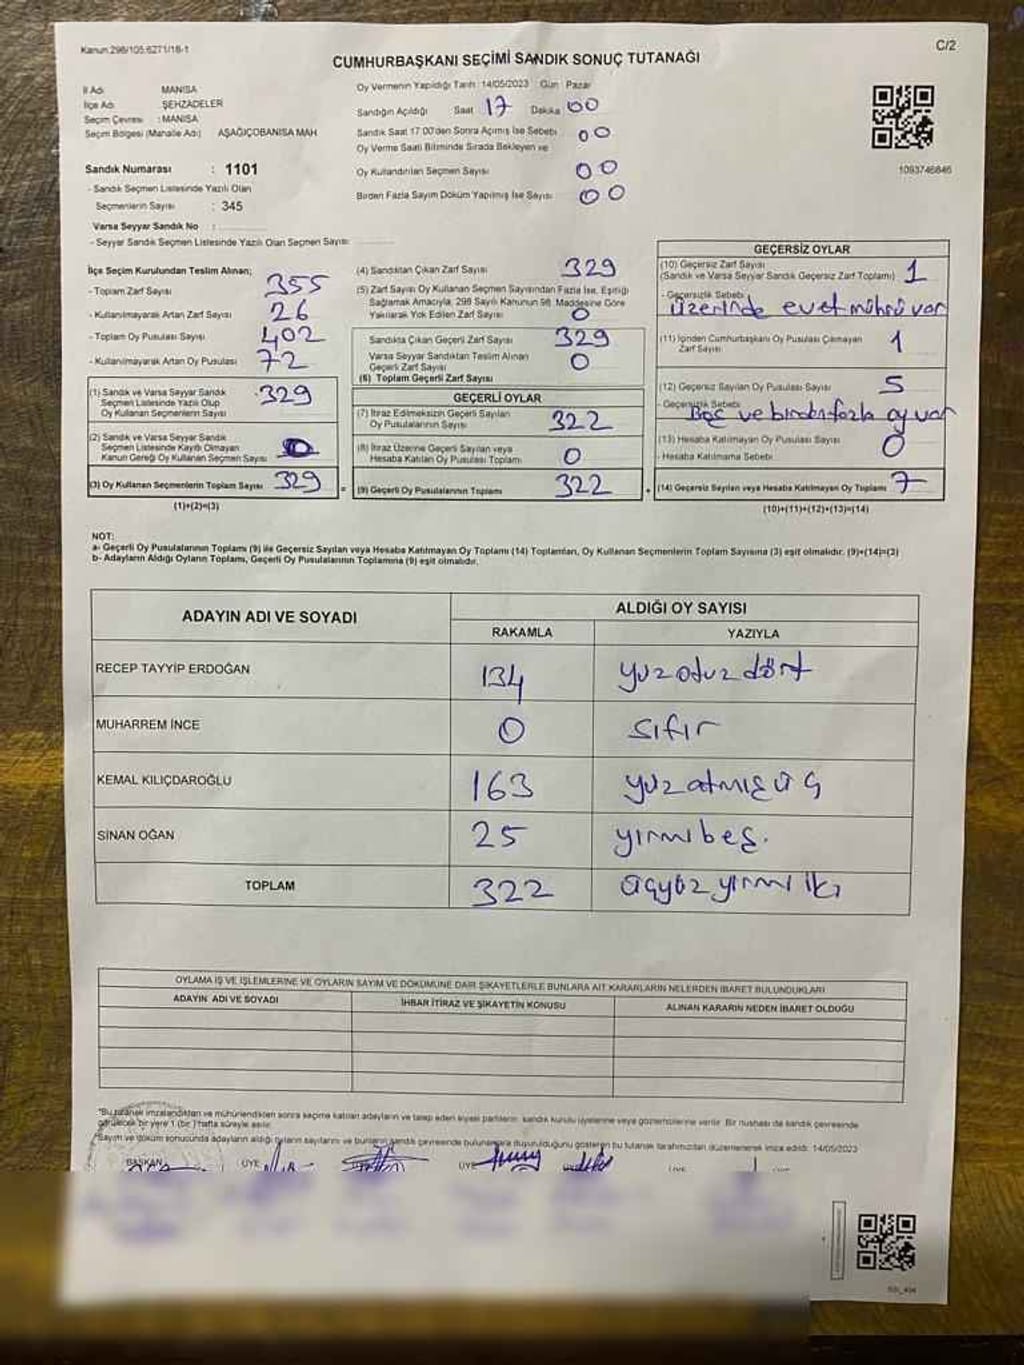 Kanun:298/105.6271/18-1
C/2
CUMHURBAŞKANI SEÇİMİ SANDIK SONUÇ TUTANAĞI
İl Adı MANİSA
İlçe Adı ŞEHZADELER
Seçim Çevresi : MANİSA
Seçim Bölgesi (Mahalle Adı) AŞAĞIÇOBANİSA MAH
Sandık Numarası : 1101
- Sandık Seçmen Listesinde Yazılı Olan
Seçmenlerin Sayısı : 345
Varsa Seyyar Sandık No :
- Seyyar Sandık Seçmen Listesinde Yazılı Olan Seçmen Sayısı:
Oy Vermenin Yapıldığı Tarih: 14/05/2023 Gün: Pazar
Sandığın Açıldığı Saat 17 Dakika 00
Sandık Saat 17:00'den Sonra Açılmış İse Sebebi 00
Oy Verme Saati Bitiminde Sırada Bekleyen ve
Oy Kullandırılan Seçmen Sayısı 00
Birden Fazla Sayım Döküm Yapılmış İse Sayısı 00
1093746846
İlçe Seçim Kurulundan Teslim Alınan;
- Toplam Zarf Sayısı 355
- Kullanılmayarak Artan Zarf Sayısı 26
- Toplam Oy Pusulası Sayısı 402
- Kullanılmayarak Artan Oy Pusulası 72
(1) Sandık ve Varsa Seyyar Sandık
Seçmen Listesinde Yazılı Olup
Oy Kullanan Seçmenlerin Sayısı 329
(2) Sandık ve Varsa Seyyar Sandık
Seçmen Listesinde Kayıtlı Olmayan
Kanun Gereği Oy Kullanan Seçmen Sayısı
(3) Oy Kullanan Seçmenlerin Toplam Sayısı 329
(1)+(2)=(3)
(4) Sandıktan Çıkan Zarf Sayısı 329
(5) Zarf Sayısı Oy Kullanan Seçmen Sayısından Fazla İse, Eşitliği
Sağlamak Amacıyla, 298 Sayılı Kanunun 98. Maddesine Göre
Yakılarak Yok Edilen Zarf Sayısı 0
Sandıkta Çıkan Geçerli Zarf Sayısı 329
Varsa Seyyar Sandıktan Teslim Alınan
Geçerli Zarf Sayısı 0
(6) Toplam Geçerli Zarf Sayısı
GEÇERLİ OYLAR
(7) İtiraz Edilmeksizin Geçerli Sayılan
Oy Pusulalarının Sayısı 322
(8) İtiraz Üzerine Geçerli Sayılan veya
Hesaba Katılan Oy Pusulası Toplamı 0
= (9) Geçerli Oy Pusulalarının Toplamı 322
GEÇERSİZ OYLAR
(10) Geçersiz Zarf Sayısı
(Sandık ve Varsa Seyyar Sandık Geçersiz Zarf Toplamı) 1
- Geçersizlik Sebebi
Üzerinde evet mührü var
(11) İçinden Cumhurbaşkanı Oy Pusulası Çıkmayan
Zarf Sayısı 1
(12) Geçersiz Sayılan Oy Pusulası Sayısı 5
- Geçersizlik Sebebi
Boş ve birden fazla oy var
(13) Hesaba Katılmayan Oy Pusulası Sayısı 0
- Hesaba Katılmama Sebebi
+ (14) Geçersiz Sayılan veya Hesaba Katılmayan Oy Toplamı 7
(10)+(11)+(12)+(13)=(14)
NOT:
a- Geçerli Oy Pusulalarının Toplamı (9) ile Geçersiz Sayılan veya Hesaba Katılmayan Oy Toplamı (14) Toplamları, Oy Kullanan Seçmenlerin Toplam Sayısına (3) eşit olmalıdır. (9)+(14)=(3)
b- Adayların Aldığı Oyların Toplamı, Geçerli Oy Pusulalarının Toplamına (9) eşit olmalıdır.
ADAYIN ADI VE SOYADI
ALDIĞI OY SAYISI
RAKAMLA YAZIYLA
RECEP TAYYİP ERDOĞAN 134 yüzotuzdört
MUHARREM İNCE 0 sıfır
KEMAL KILIÇDAROĞLU 163 yüzatmışüç
SİNAN OĞAN 25 yirmibeş.
TOPLAM 322 üçyüzyirmi iki
OYLAMA İŞ VE İŞLEMLERİNE VE OYLARIN SAYIM VE DÖKÜMÜNE DAİR ŞİKAYETLERLE BUNLARA AİT KARARLARIN NELERDEN İBARET BULUNDUKLARI
ADAYIN ADI VE SOYADI İHBAR İTİRAZ VE ŞİKAYETİN KONUSU ALINAN KARARIN NEDEN İBARET OLDUĞU
*Bu tutanak imzalandıktan ve mühürlendikten sonra seçime katılan adayların ve talep eden siyasi partilerin sandık kurulu üyelerine veya gözlemcilerine verilir. Bir nüshası da sandık çevresinde
görülecek bir yere 1 (bir) hafta süreyle asılır.
*Sayım ve döküm sonucunda adayların aldığı oyların sayılarını ve bunların sandık çevresinde bulunanlara duyurulduğunu gösteren bu tutanak tarafımızdan düzenlenerek imza edildi. 14/05/2023
BAŞKAN ÜYE ÜYE ÜYE